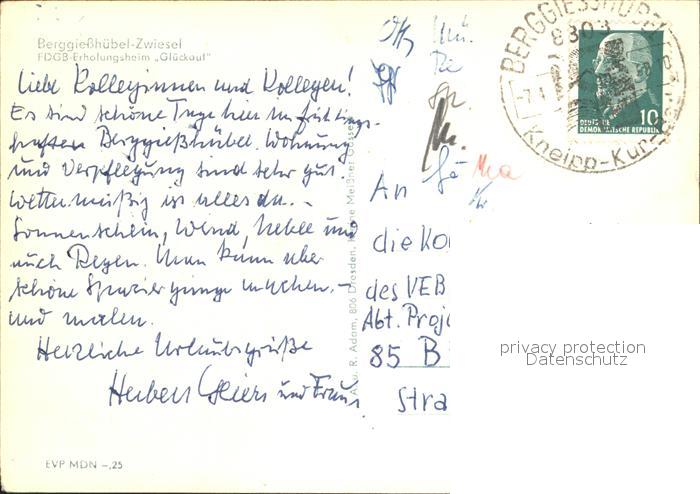 Berggießhübel-Zwiesel
FDGB-Erholungsheim „Glückauf"
Liebe Kolleginnen und Kollegen!
Es sind schöne Tage hier im frühlings-
haften Berggießhübel. Wohnung
und Verpflegung sind sehr gut.
Wettermäßig ist alles da. -
Sonnenschein, Wind, Nebel und
auch Regen. Man kann aber
schöne Spaziergänge machen. -
und malen.
Herzliche Urlaubsgrüße
Herbert und Frau
EVP MDN -,25
R. Adam, 806 Dresden, Meißner Gasse
BERGGIESSHÜBEL
8303
Kneipp-Kur-
10
DEUTSCHE
DEMOKRATISCHE REPUBLIK
An
die Ko
des VEB
Abt. Proj
85 B
Stra
privacy protection
Datenschutz